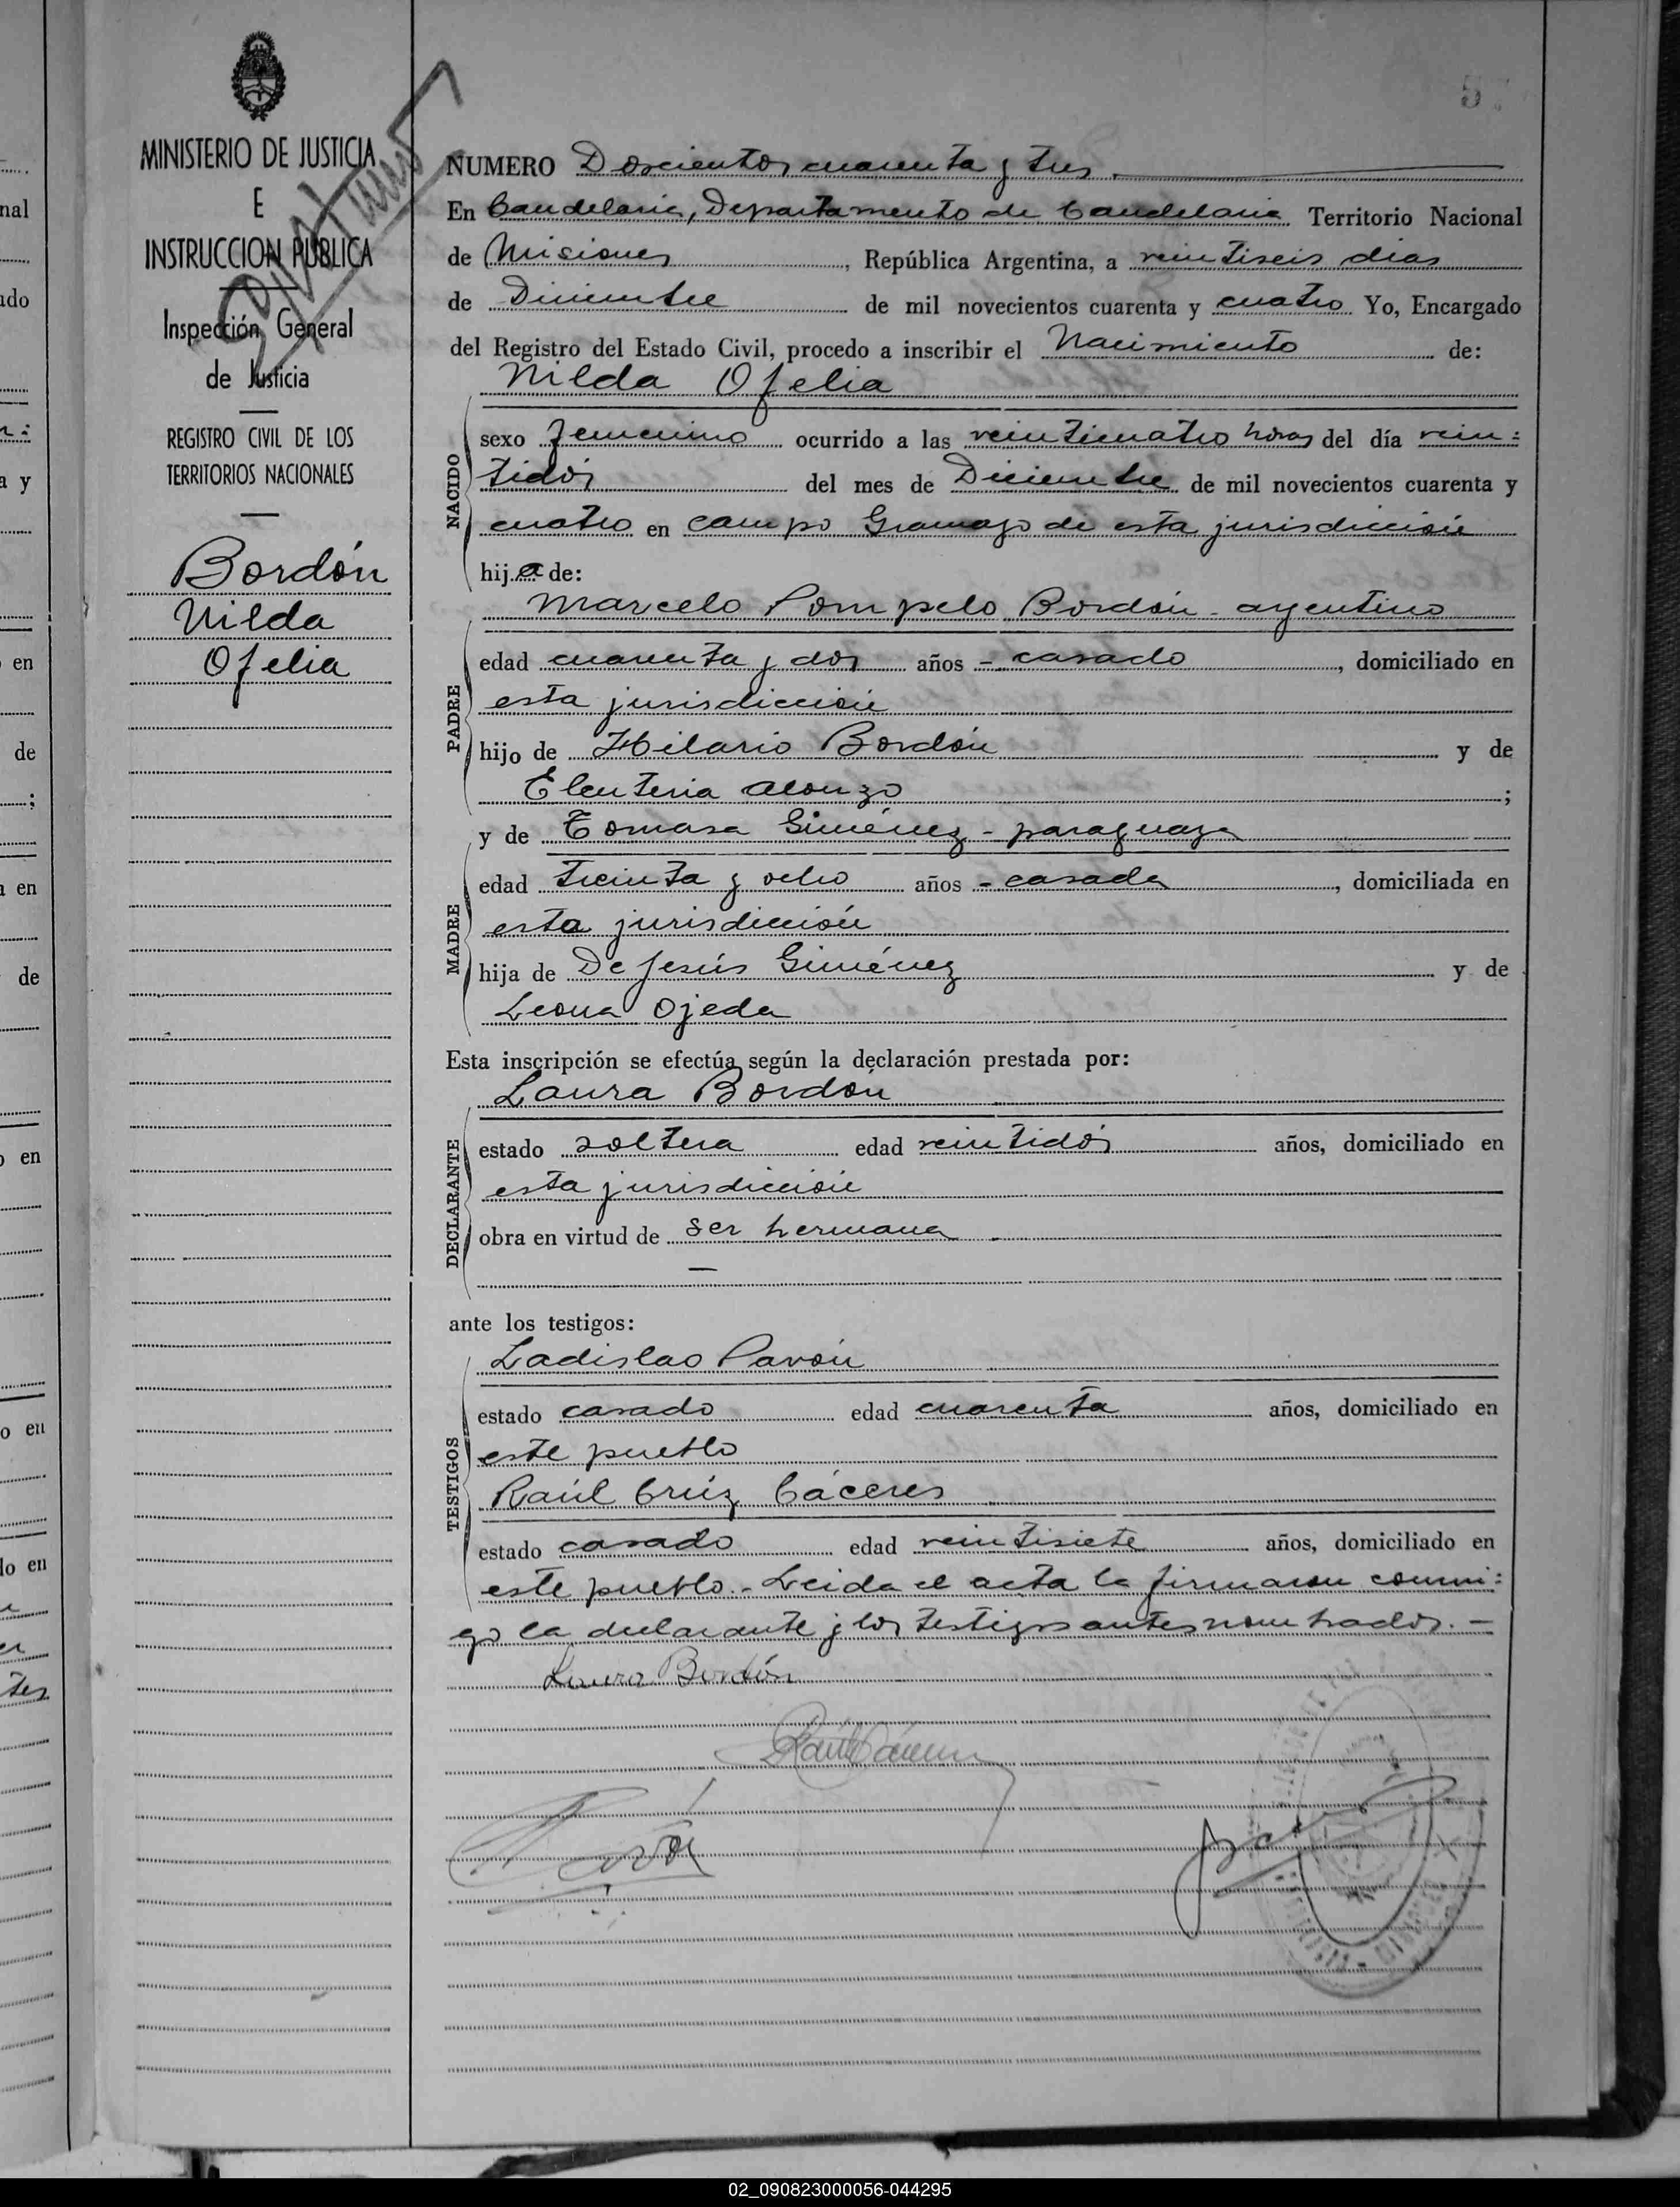 5
MINISTERIO DE JUSTICIA
E
INSTRUCCION PUBLICA
Inspección General
de Justicia
REGISTRO CIVIL DE LOS
TERRITORIOS NACIONALES
Bordón
Nilda
Ofelia
NUMERO Doscientos cuarenta y tres
En Candelaria, Departamento de Candelaria Territorio Nacional
de Misiones, República Argentina, a veintiseis dias
de Diciembre de mil novecientos cuarenta y cuatro Yo, Encargado
del Registro del Estado Civil, procedo a inscribir el Nacimiento de:
Nilda Ofelia
NACIDO
sexo femenino ocurrido a las veinticuatro horas del día vein=
tidós del mes de Diciembre de mil novecientos cuarenta y
cuatro en campo Gramajo de esta jurisdicción
hija de:
Marcelo Pompelo Bordón - argentino
PADRE
edad cuarenta y dos años - casado, domiciliado en
esta jurisdicción
hijo de Hilario Bordón y de
Eleuteria Alonzo ;
y de Tomasa Giménez - paraguaya
MADRE
edad treinta y ocho años - casada, domiciliada en
esta jurisdicción
hija de De Jesús Giménez y de
Leona Ojeda
Esta inscripción se efectúa según la declaración prestada por:
Laura Bordón
DECLARANTE
estado soltera edad veintidós años, domiciliado en
esta jurisdicción
obra en virtud de ser hermana
ante los testigos:
Ladislao Pavón
TESTIGOS
estado casado edad cuarenta años, domiciliado en
este pueblo
Raúl Crúz Cáceres
estado casado edad veintisiete años, domiciliado en
este pueblo.- Leida el acta la firmaron conmi=
go la declarante y los testigos antes nombrados. -
Laura Bordón
Raúl Cáceres
02_090823000056-044295